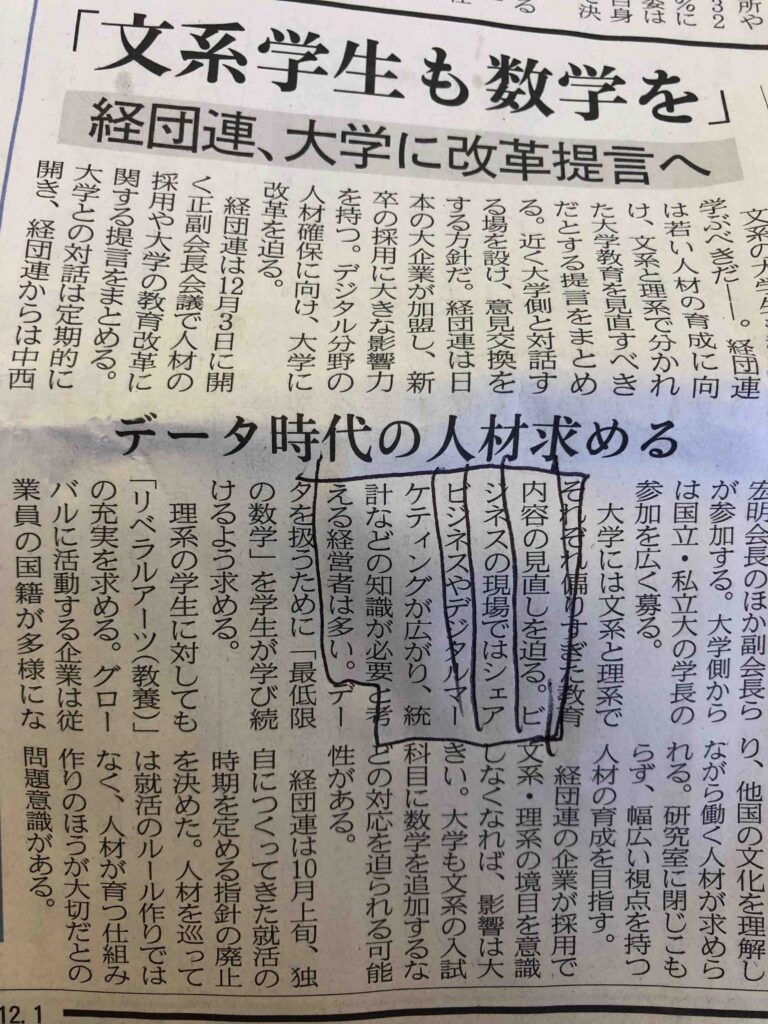 「文系学生も数学を」
経団連、大学に改革提言へ
文系の大学生
学ぶべきだ――。経団連
は若い人材の育成に向
け、文系と理系で分かれ
た大学教育を見直すべき
だとする提言をまとめ
る。近く大学側と対話す
る場を設け、意見交換を
する方針だ。経団連は日
本の大企業が加盟し、新
卒の採用に大きな影響力
を持つ。デジタル分野の
人材確保に向け、大学に
改革を迫る。
経団連は12月3日に開
く正副会長会議で人材の
採用や大学の教育改革に
関する提言をまとめる。
大学との対話は定期的に
開き、経団連からは中西
データ時代の人材求める
宏明会長のほか副会長ら
が参加する。大学側から
は国立・私立大の学長の
参加を広く募る。
大学には文系と理系で
それぞれ偏りすぎた教育
内容の見直しを迫る。ビ
ジネスの現場ではシェア
ビジネスやデジタルマー
ケティングが広がり、統
計などの知識が必要と考
える経営者は多い。デー
タを扱うために「最低限
の数学」を学生が学び続
けるよう求める。
理系の学生に対しても
「リベラルアーツ(教養)」
の充実を求める。グロー
バルに活動する企業は従
業員の国籍が多様にな
り、他国の文化を理解し
ながら働く人材が求めら
れる。研究室に閉じこも
らず、幅広い視点を持つ
人材の育成を目指す。
経団連の企業が採用で
文系・理系の境目を意識
しなくなれば、影響は大
きい。大学も文系の入試
科目に数学を追加するな
どの対応を迫られる可能
性がある。
経団連は10月上旬、独
自につくってきた就活の
時期を定める指針の廃止
を決めた。人材を巡って
は就活のルール作りでは
なく、人材が育つ仕組み
作りのほうが大切だとの
問題意識がある。
12.1